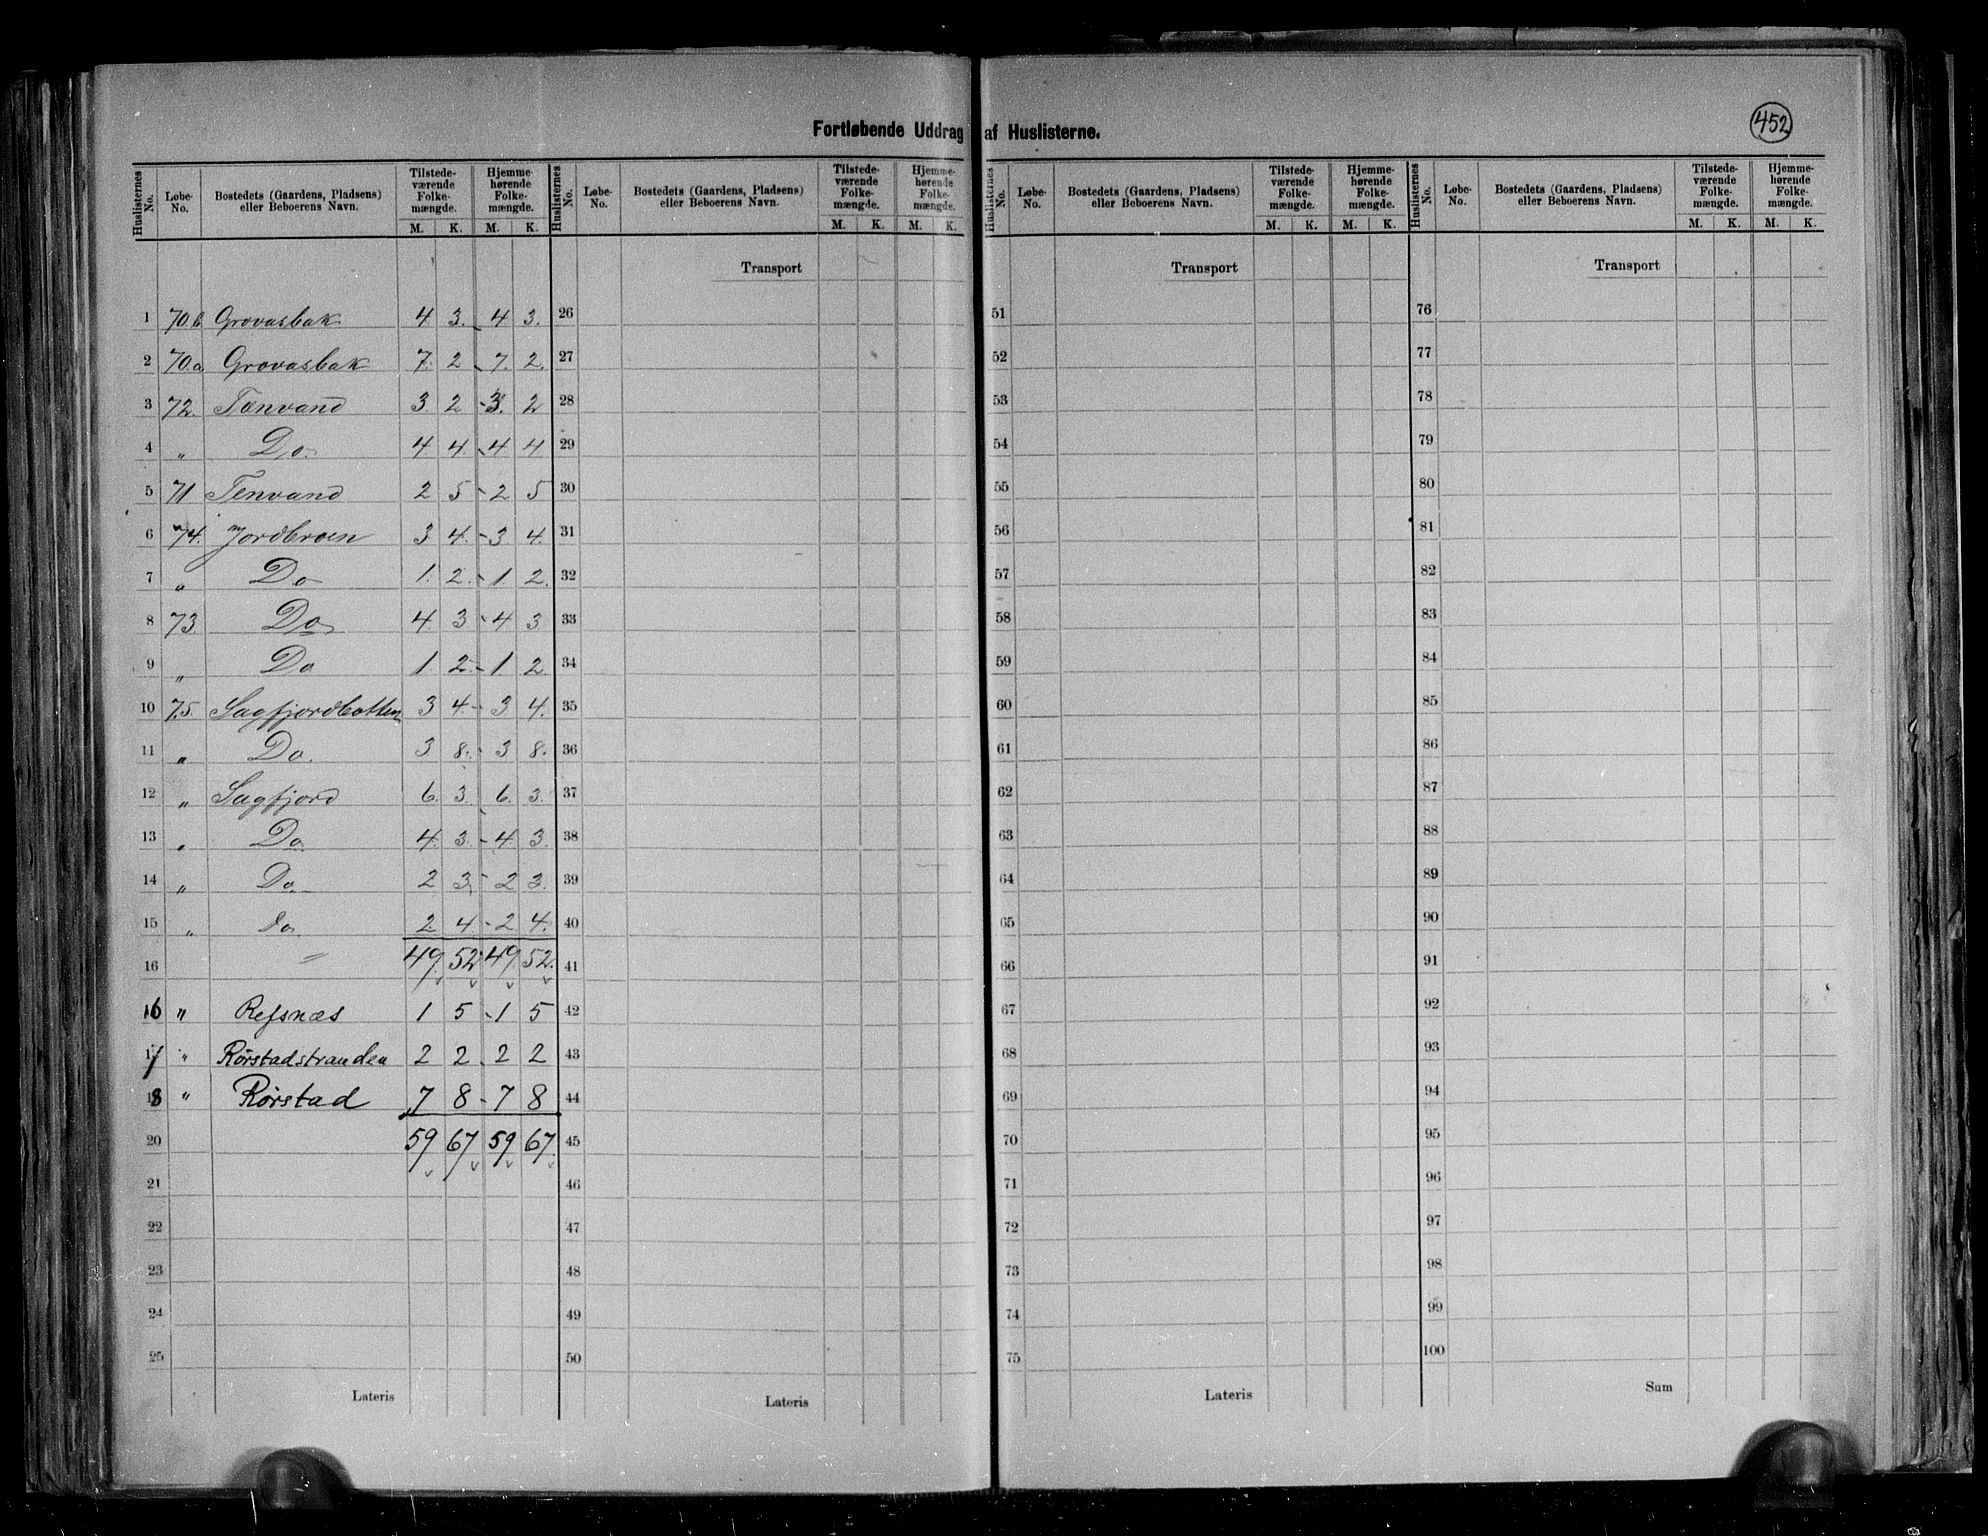 Fortløbende Uddrag af Huslisterne.
452
Huslisternes No. Løbe-No. Bostedets (Gaardens, Pladsens) eller Beboerens Navn. Tilstede-værende Folke-mængde. M. K. Hjemme-hørende Folke-mængde. M. K.
Huslisternes No. Løbe-No. Bostedets (Gaardens, Pladsens) eller Beboerens Navn. Tilstede-værende Folke-mængde. M. K. Hjemme-hørende Folke-mængde. M. K.
Huslisternes No. Løbe-No. Bostedets (Gaardens, Pladsens) eller Beboerens Navn. Tilstede-værende Folke-mængde. M. K. Hjemme-hørende Folke-mængde. M. K.
Huslisternes No. Løbe-No. Bostedets (Gaardens, Pladsens) eller Beboerens Navn. Tilstede-værende Folke-mængde. M. K. Hjemme-hørende Folke-mængde. M. K.
1 70.b Grovasbak 4 3. 4 3.
2 70.a Grovasbak 7. 2 7. 2.
3 72. Tenvand 3. 2 - 3. 2
4 „ Do. 4 4. 4 4
5 71 Tenvand 2 5 - 2 5
6 74. Jordbroen 3 4. - 3 4.
7 „ Do 1. 2. - 1. 2.
8 73. Do 4. 3 - 4 3
9 „ Do 1. 2. - 1 2.
10 75. Sagfjordbotten 3 4. - 3 4.
11 „ Do. 3 8. - 3 8.
12 „ Sagfjord 6. 3. 6. 3.
13 „ Do. 4. 3. - 4. 3.
14 „ Do. 2 3. - 2 3.
15 „ do. 2. 4. - 2. 4.
16 49. 52 49. 52.
16 „ Refsnæs 1 5 - 1 5
17 „ Rørstadstranden 2 2 - 2 2
18 „ Rørstad 7 8 - 7 8
20 59 67 59 67.
21
22
23
24
25
Lateris
Transport
26
27
28
29
30
31
32
33
34
35
36
37
38
39
40
41
42
43
44
45
46
47
48
49
50
Lateris
Transport
51
52
53
54
55
56
57
58
59
60
61
62
63
64
65
66
67
68
69
70
71
72
73
74
75
Lateris
Transport
76
77
78
79
80
81
82
83
84
85
86
87
88
89
90
91
92
93
94
95
96
97
98
99
100
Sum